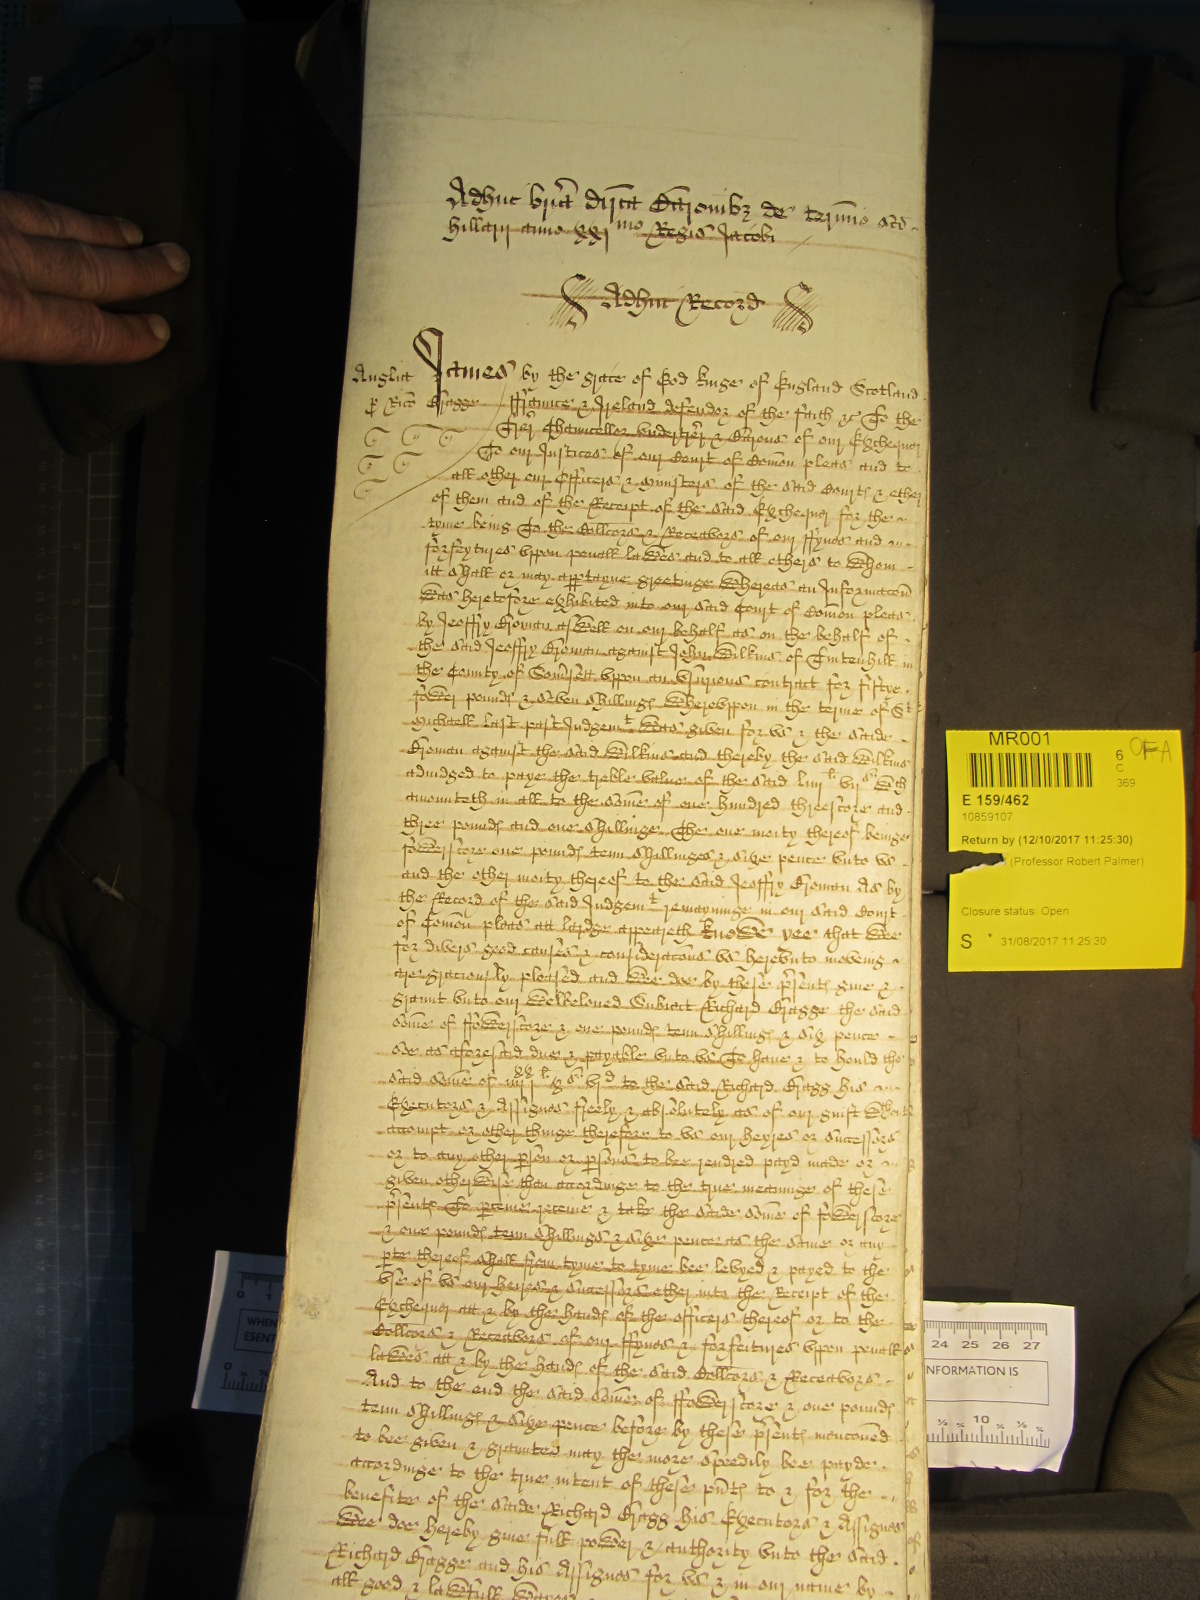 Adhuc bria dirca Baronibz de termio scd
Hillarii anno xxj mo Regis Jacobi
Adhuc Record
Anglia
James by the grace of God kinge of England Scotland
p Rico Bragge
ffraunce & Ireland defendor of the faith &c To the
Trer Chauncellor undertrer & Barons of our Exchequer
To our Justices of our Court of Comon pleas and to
all other our Officers & ministers of the said Courts & ether
of them and of the Receipt of the said Exchequer for the
tyme being To the Collcors & Receavors of our ffynes and
forfeytures uppon penall lawes and to all others to whom
itt shall or may apptayne greetinge Whereas an Informacon
was heretofore exhibited into our said Court of Comon pleas
by Jeoffry Boman aswell on our behalf as on the behalf of
the said Jeoffry Boman against John Wilkins of Tintenhill in
the County of Somsett uppon an usurious contract for fiftye
fower pounds & seven shillings Whereuppon in the terme of St
Michaell last past Judgemt was given for us & the saide
Boman against the said Wilkins and thereby the said Wilkins
adiudged to paye the treble value of the said liiij li vij s wch
amounteth in all to the some of one hundred threescore and
three pounds and one shillinge The one moity thereof beinge
fowerscore one pounds tenn shillinges & sixe pence unto us
and the other moity thereof to the said Jeoffry Boman As by
the Record of the said Judgemt remayninge in our said Court
of Comon pleas att lardge appeareth knowe yee that wee
for divers good causes & consideracons us hereunto moveing
are graciously pleased and wee doe by these prsents give &
graunt unto our welbeloved Subiect Richard Bragge the said
some of ffowerscore & one pounds tenn shillings & six pence
soe as aforesaid due & payable unto us To have & to hould the
said some of iiij xx j li x s vj d to the said Richard Bragg his
Executors & Assignes freely & absolutely as of our guift wthout
accompt or other thinge therefore to us our heyres or successors
or to any other pson or psons to bee rendred payd made or
given otherwise then accordinge to the true meaninge of these
prsents To pceive receive & take the saide some of fowerscore
& one pounds tenn shillings & sixe pence as the same or any
pte thereof shall from tyme to tyme bee levyed & payed to the
use of us our heires & successors ether into the Receipt of the
Exchequer att & by the hands of the officers thereof or to the
Collcors & Receavors of our ffynes & forfeitures uppon penall
lawes att & by the hands of the said Collcors & Receavors
And to the end the said some of ffowerscore & one pounds
tenn shillings & sixe pence before by these prsents menconed
to bee given & graunted may the more speedily bee payde
accordinge to the true intent of these pnts to & for the
benefitt of the saide Richard Bragg his Executors & Assignes
Wee doe hereby give full power & authority unto the said
Richard Bragge and his Assignes for us & in our name by
all good & lawfull
MR001
6
C
369
OFA
E 159/462
10859107
Return by (12/10/2017 11:25:30)
(Professor Robert Palmer)
Closure status Open
S
31/08/2017 11:25:30
0 1
WHEN
ESENT
24 25 26 27
NFORMATION IS
10